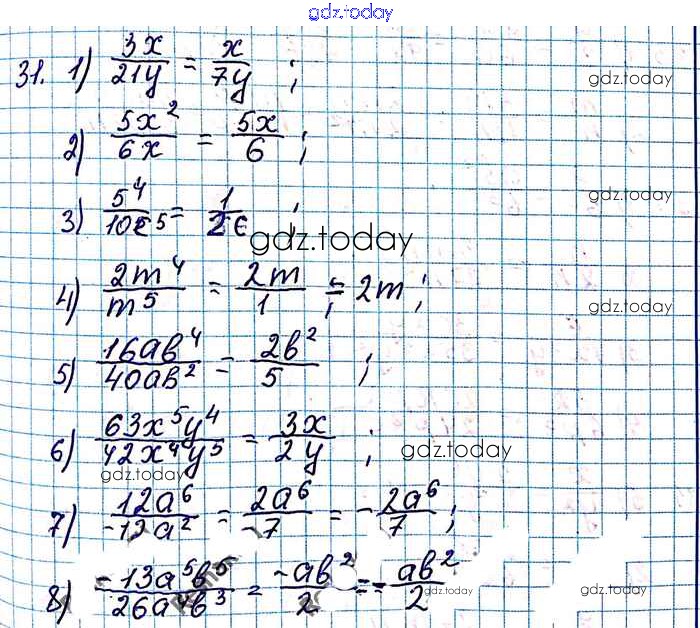 gdz.today
31. 1) 3x/21y = x/7y ;
gdz.today
2) 5x²/6x = 5x/6 ;
gdz.today
3) 5⁴/10c⁵ = 1/2c ;
gdz.today
4) 2m⁴/m⁵ = 2m/1 = 2m ;
gdz.today
5) 16ab⁴/40ab² = 2b²/5 ;
6) 63x⁵y⁴/42x⁴y⁵ = 3x/2y ;
gdz.today
gdz.today
7) 12a⁶/-12a² = 2a⁶/-7 = -2a⁶/7 ;
gdz.today
8) -13a⁵b⁵/26a⁴b³ = -ab²/2 = -ab²/2
gdz.today